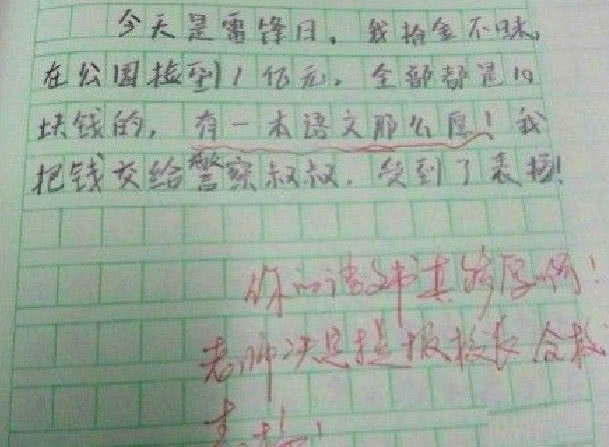 今天是雷锋日，我拾金不昧，
在公园捡到1亿元，全部都是10
块钱的，有一本语文那么厚！我
把钱交给警察叔叔，受到了表扬！
你的语文书真够厚啊！
老师决定提报校长全校
表扬！